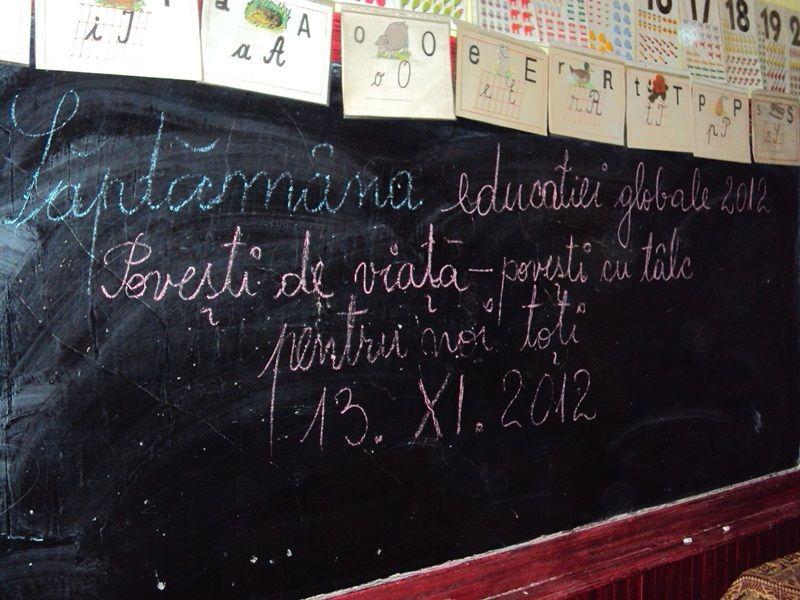 i I
a A
a A
o O
o O
e E
e E
r R
r R
t T
t T
p P
p P
s S
17 18 19 2
Săptămâna educatiei globale 2012
Povești de viață - povești cu tâlc
pentru noi toți
13. XI. 2012